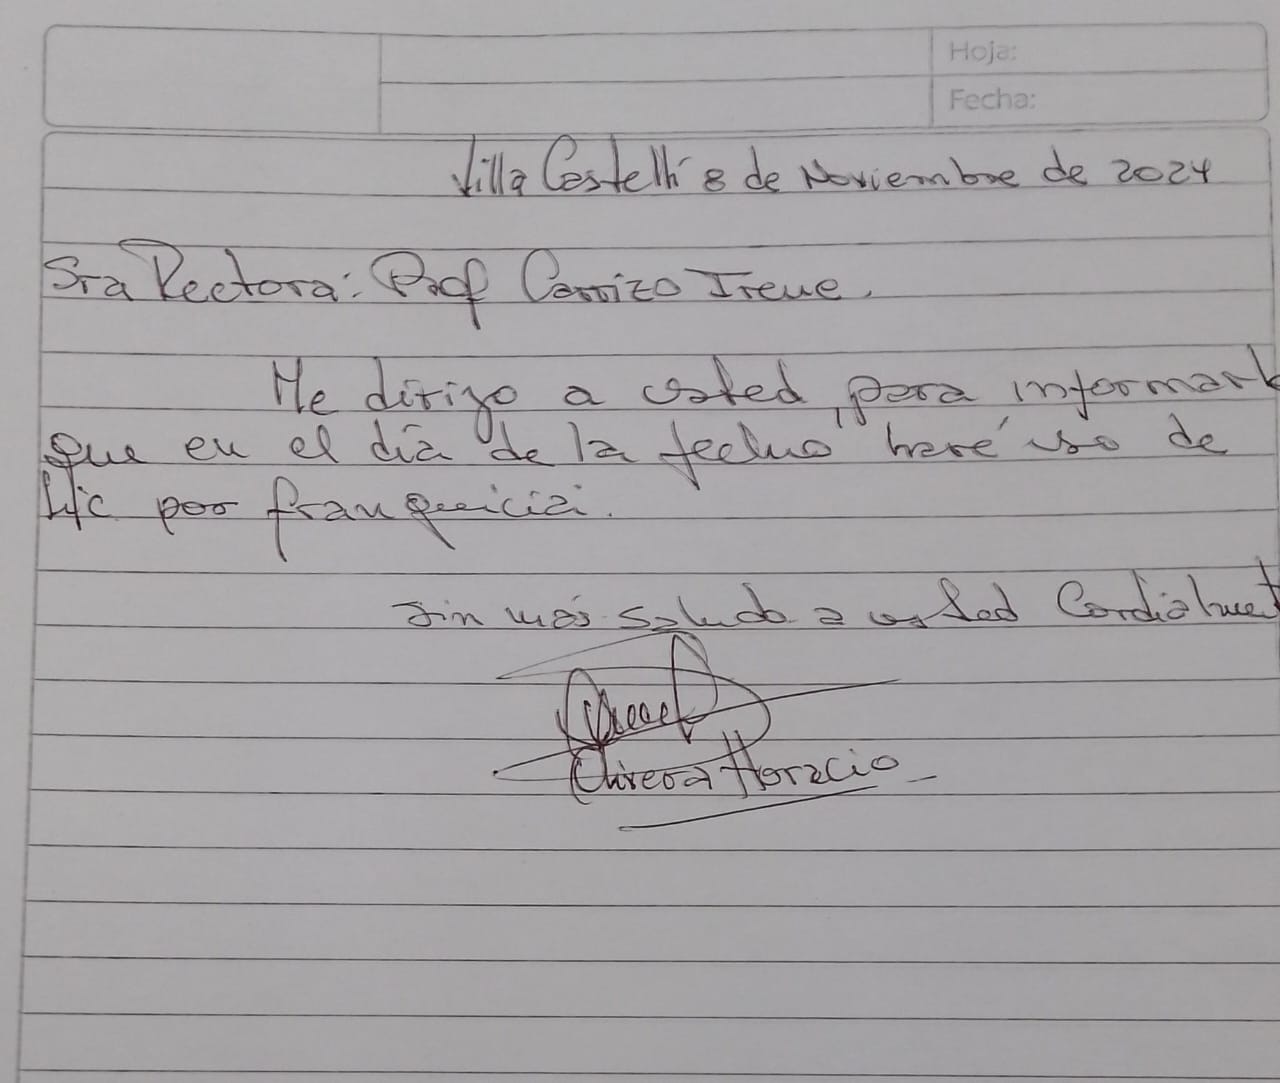 Hoja:
Fecha:
Villa Castelli 8 de Noviembre de 2024
Sra Rectora: Prof Carrizo Irene.
Me dirijo a usted, para informarle
que en el día de la fecha haré uso de
Lic por franquicia.
Sin más saludo a usted Cordialment
Olivera Horacio